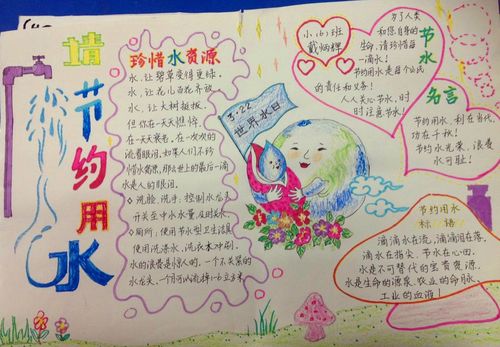 请节约用水
珍惜水资源
水,让碧草变得更绿.
水,让花儿百花齐放
水,让大树挺拔.
但你在一天天憔悴.
在一天天衰老.在一次次的
流着眼泪.如果人们不珍
惜水资源,那么世上的最后一滴
水是人的眼泪.
洗脸、洗手、控制水龙头
开关至中水水量,及时关水
厕所,使用节水型卫生洁具
使用洗涤水,洗衣水冲刷.
水的浪费是惊人的.一个不关紧的
水龙头,一个月可以流掉1-6立方米
3·22
世界水日
小(6)班
戴炳辉
为了人类
和您自身的
生命,请珍惜每
一滴水!
节约用水是每个公民
的责任和义务!
人人关心节水,时
时注意节水!
节水
名言
节约用水,利在当代,
功在千秋!
节约水光荣,浪费
水可耻!
节约用水
标语
滴滴水在流,滴滴泪在落.
滴水在指尖,节水在心田.
水是不可替代的宝贵资源.
水是生命的源泉、农业的命脉、
工业的血液!